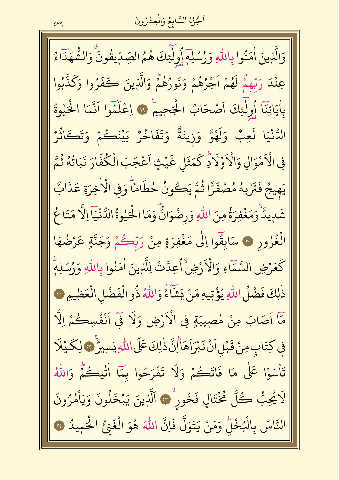 اَلْجُزْءُ السَّابِعُ وَالْعِشْرُونَ
وَالَّذٖينَ اٰمَنُوا بِاللّٰهِ وَرُسُلِهٖٓ اُو۬لٰٓئِكَ هُمُ الصِّدّٖيقُونَۗ وَالشُّهَدَٓاءُ
عِنْدَ رَبِّهِمْۜ لَهُمْ اَجْرُهُمْ وَنُورُهُمْۜ وَالَّذٖينَ كَفَرُوا وَكَذَّبُوا
بِاٰيَاتِنَٓا اُو۬لٰٓئِكَ اَصْحَابُ الْجَحٖيمِ ۟ اِعْلَمُٓوا اَنَّمَا الْحَيٰوةُ
الدُّنْيَا لَعِبٌ وَلَهْوٌ وَزٖينَةٌ وَتَفَاخُرٌ بَيْنَكُمْ وَتَكَاثُرٌ
فِي الْاَمْوَالِ وَالْاَوْلَادِۜ كَمَثَلِ غَيْثٍ اَعْجَبَ الْكُفَّارَ نَبَاتُهُ ثُمَّ
يَهٖيجُ فَتَرٰيهُ مُصْفَرًّا ثُمَّ يَكُونُ حُطَامًاۜ وَفِي الْاٰخِرَةِ عَذَابٌ
شَدٖيدٌۙ وَمَغْفِرَةٌ مِنَ اللّٰهِ وَرِضْوَانٌۜ وَمَا الْحَيٰوةُ الدُّنْيَٓا اِلَّا مَتَاعُ
الْغُرُورِ ۟ سَابِقُٓوا اِلٰى مَغْفِرَةٍ مِنْ رَبِّكُمْ وَجَنَّةٍ عَرْضُهَا
كَعَرْضِ السَّمَٓاءِ وَالْاَرْضِۙ اُعِدَّتْ لِلَّذٖينَ اٰمَنُوا بِاللّٰهِ وَرُسُلِهٖۜ
ذٰلِكَ فَضْلُ اللّٰهِ يُؤْتٖيهِ مَنْ يَشَٓاءُۜ وَاللّٰهُ ذُو الْفَضْلِ الْعَظٖيمِ ۟
مَٓا اَصَابَ مِنْ مُصٖيبَةٍ فِي الْاَرْضِ وَلَا فٖٓي اَنْفُسِكُمْ اِلَّا
فٖي كِتَابٍ مِنْ قَبْلِ اَنْ نَبْرَاَهَاۜ اِنَّ ذٰلِكَ عَلَى اللّٰهِ يَسٖيرٌۚ ۟ لِكَيْلَا
تَأْسَوْا عَلٰى مَا فَاتَكُمْ وَلَا تَفْرَحُوا بِمَٓا اٰتٰيكُمْۜ وَاللّٰهُ
لَا يُحِبُّ كُلَّ مُخْتَالٍ فَخُورٍۙ ۟ اَلَّذٖينَ يَبْخَلُونَ وَيَأْمُرُونَ
النَّاسَ بِالْبُخْلِۜ وَمَنْ يَتَوَلَّ فَاِنَّ اللّٰهَ هُوَ الْغَنِيُّ الْحَمٖيدُ ۟